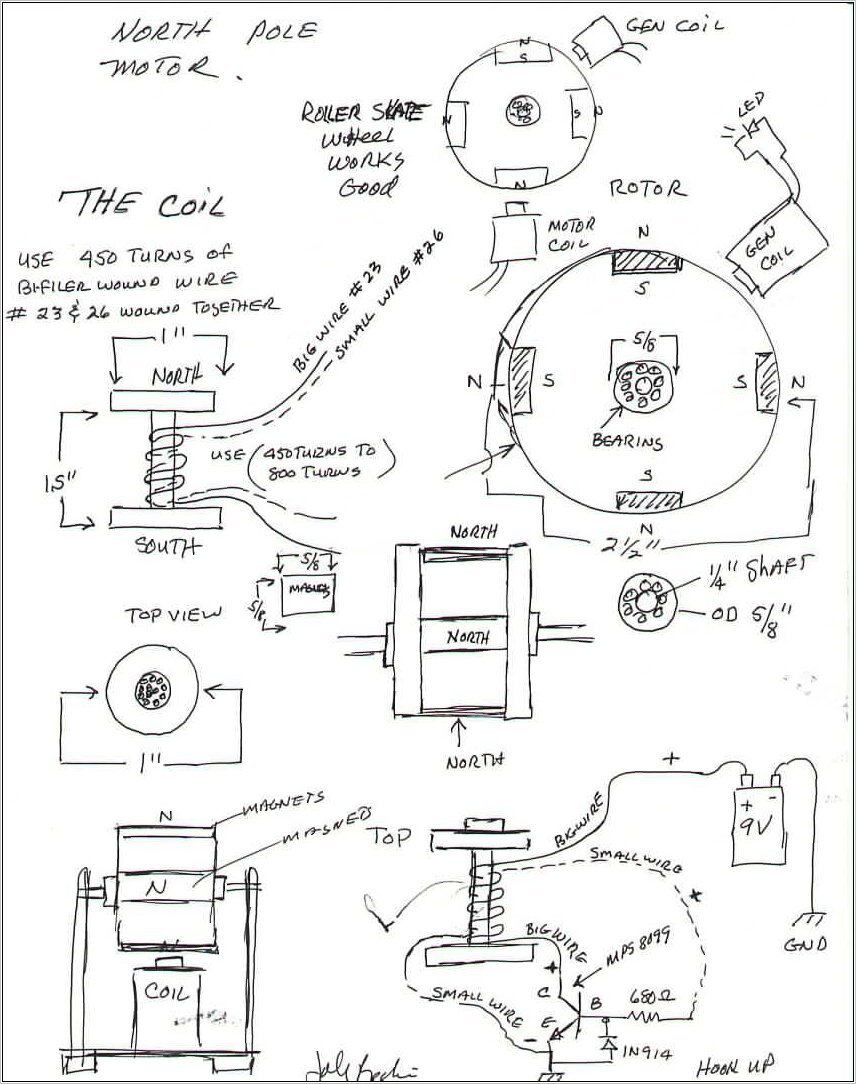 NORTH POLE
MOTOR.
GEN COIL
N
S
N
S
N
N
ROLLER SKATE
WHEEL
WORKS
GOOD
MOTOR
COIL
LED
GEN
COIL
THE COIL
USE 450 TURNS OF
BIFILER WOUND WIRE
# 23 & 26 WOUND TOGETHER
1"
NORTH
1.5"
SOUTH
BIG WIRE #23
SMALL WIRE #26
USE (450 TURNS TO
800 TURNS)
ROTOR
N
S
N
S
S
N
5/8
BEARING
S
N
2 1/2"
5/8
MAGNET
5/8
NORTH
NORTH
NORTH
1/4" SHAFT
OD 5/8"
TOP VIEW
1"
N
MAGNETS
MAGNETS
N
N
COIL
TOP
BIG WIRE
+
SMALL WIRE
+ -
9V
GND
BIG WIRE
+
MPS8099
C
B
680Ω
E
-
SMALL WIRE
1N914
HOOK UP